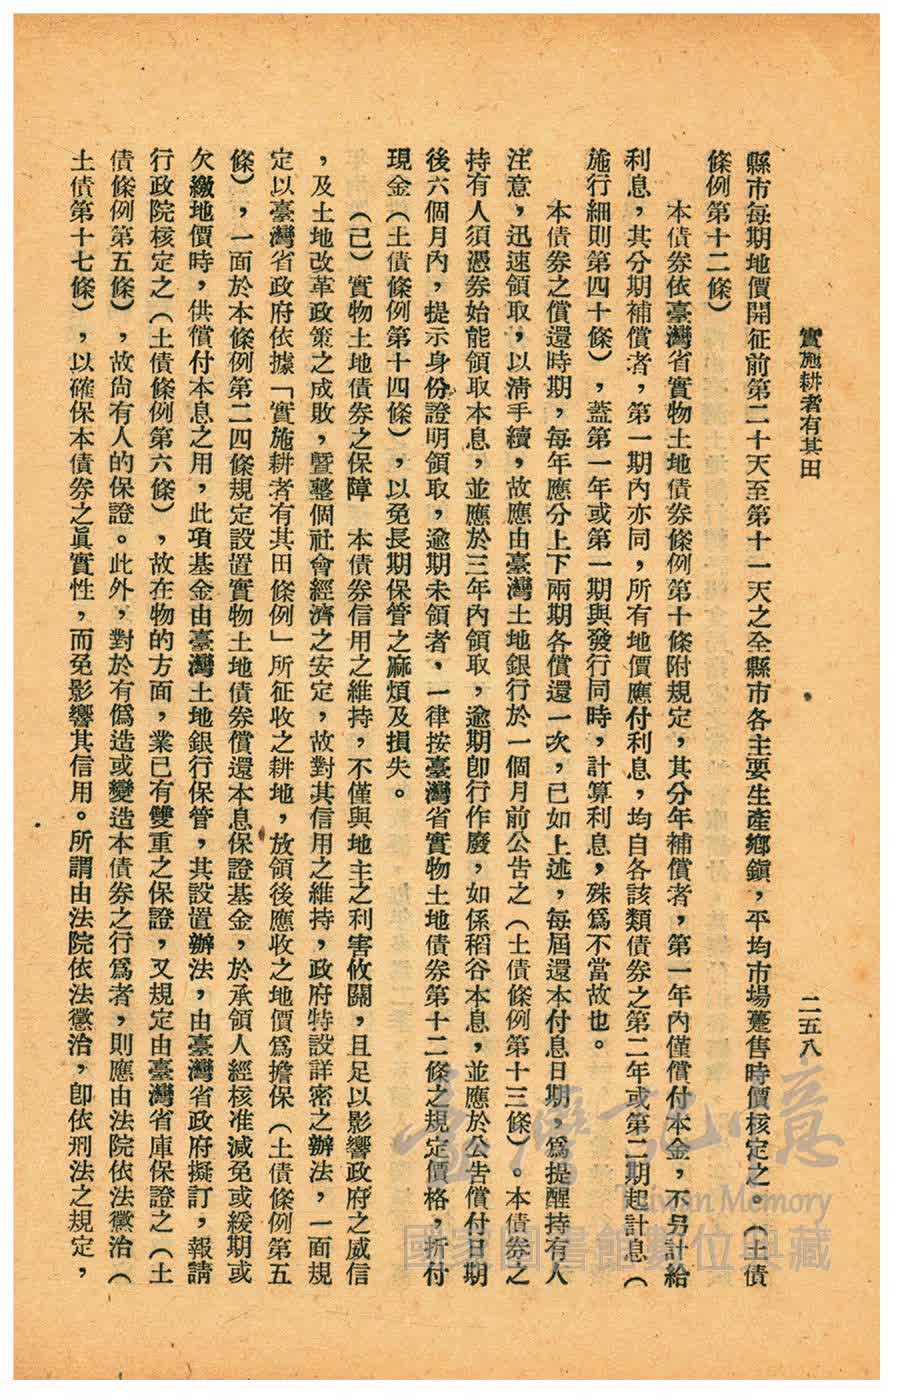 實施耕者有其田
二五八
縣市每期地價開征前第二十天至第十一天之全縣市各主要生產鄉鎮，平均市場躉售時價核定之。（土債
條例第十二條）
本債券依臺灣省實物土地債券條例第十條附規定，其分年補償者，第一年內僅償付本金，不另計給
利息，其分期補償者，第一期內亦同，所有地價應付利息，均自各該類債券之第二年或第二期起計息（
施行細則第四十條），蓋第一年或第一期與發行同時，計算利息，殊爲不當故也。
本債券之償還時期，每年應分上下兩期各償還一次，已如上述，每屆還本付息日期，爲提醒持有人
注意，迅速領取，以清手續，故應由臺灣土地銀行於一個月前公告之（土債條例第十三條）。本債券之
持有人須憑券始能領取本息，並應於三年內領取，逾期卽行作廢，如係稻谷本息，並應於公告償付日期
後六個月內，提示身份證明領取，逾期未領者，一律按臺灣省實物土地債券第十二條之規定價格，折付
現金（土債條例第十四條），以免長期保管之麻煩及損失。
（己）實物土地債券之保障　本債券信用之維持，不僅與地主之利害攸關，且足以影響政府之威信
，及土地改革政策之成敗，暨整個社會經濟之安定，故對其信用之維持，政府特設詳密之辦法，一面規
定以臺灣省政府依據「實施耕者有其田條例」所征收之耕地，放領後應收之地價爲擔保（土債條例第五
條），一面於本條例第二四條規定設置實物土地債券償還本息保證基金，於承領人經核准減免或緩期或
欠繳地價時，供償付本息之用，此項基金由臺灣土地銀行保管，其設置辦法，由臺灣省政府擬訂，報請
行政院核定之（土債條例第六條），故在物的方面，業已有雙重之保證，又規定由臺灣省庫保證之（土
債條例第五條），故尙有人的保證。此外，對於有僞造或變造本債券之行爲者，則應由法院依法懲治（
土債第十七條），以確保本債券之眞實性，而免影響其信用。所謂由法院依法懲治，卽依刑法之規定，
臺灣記憶
Taiwan Memory
國家圖書館數位典藏